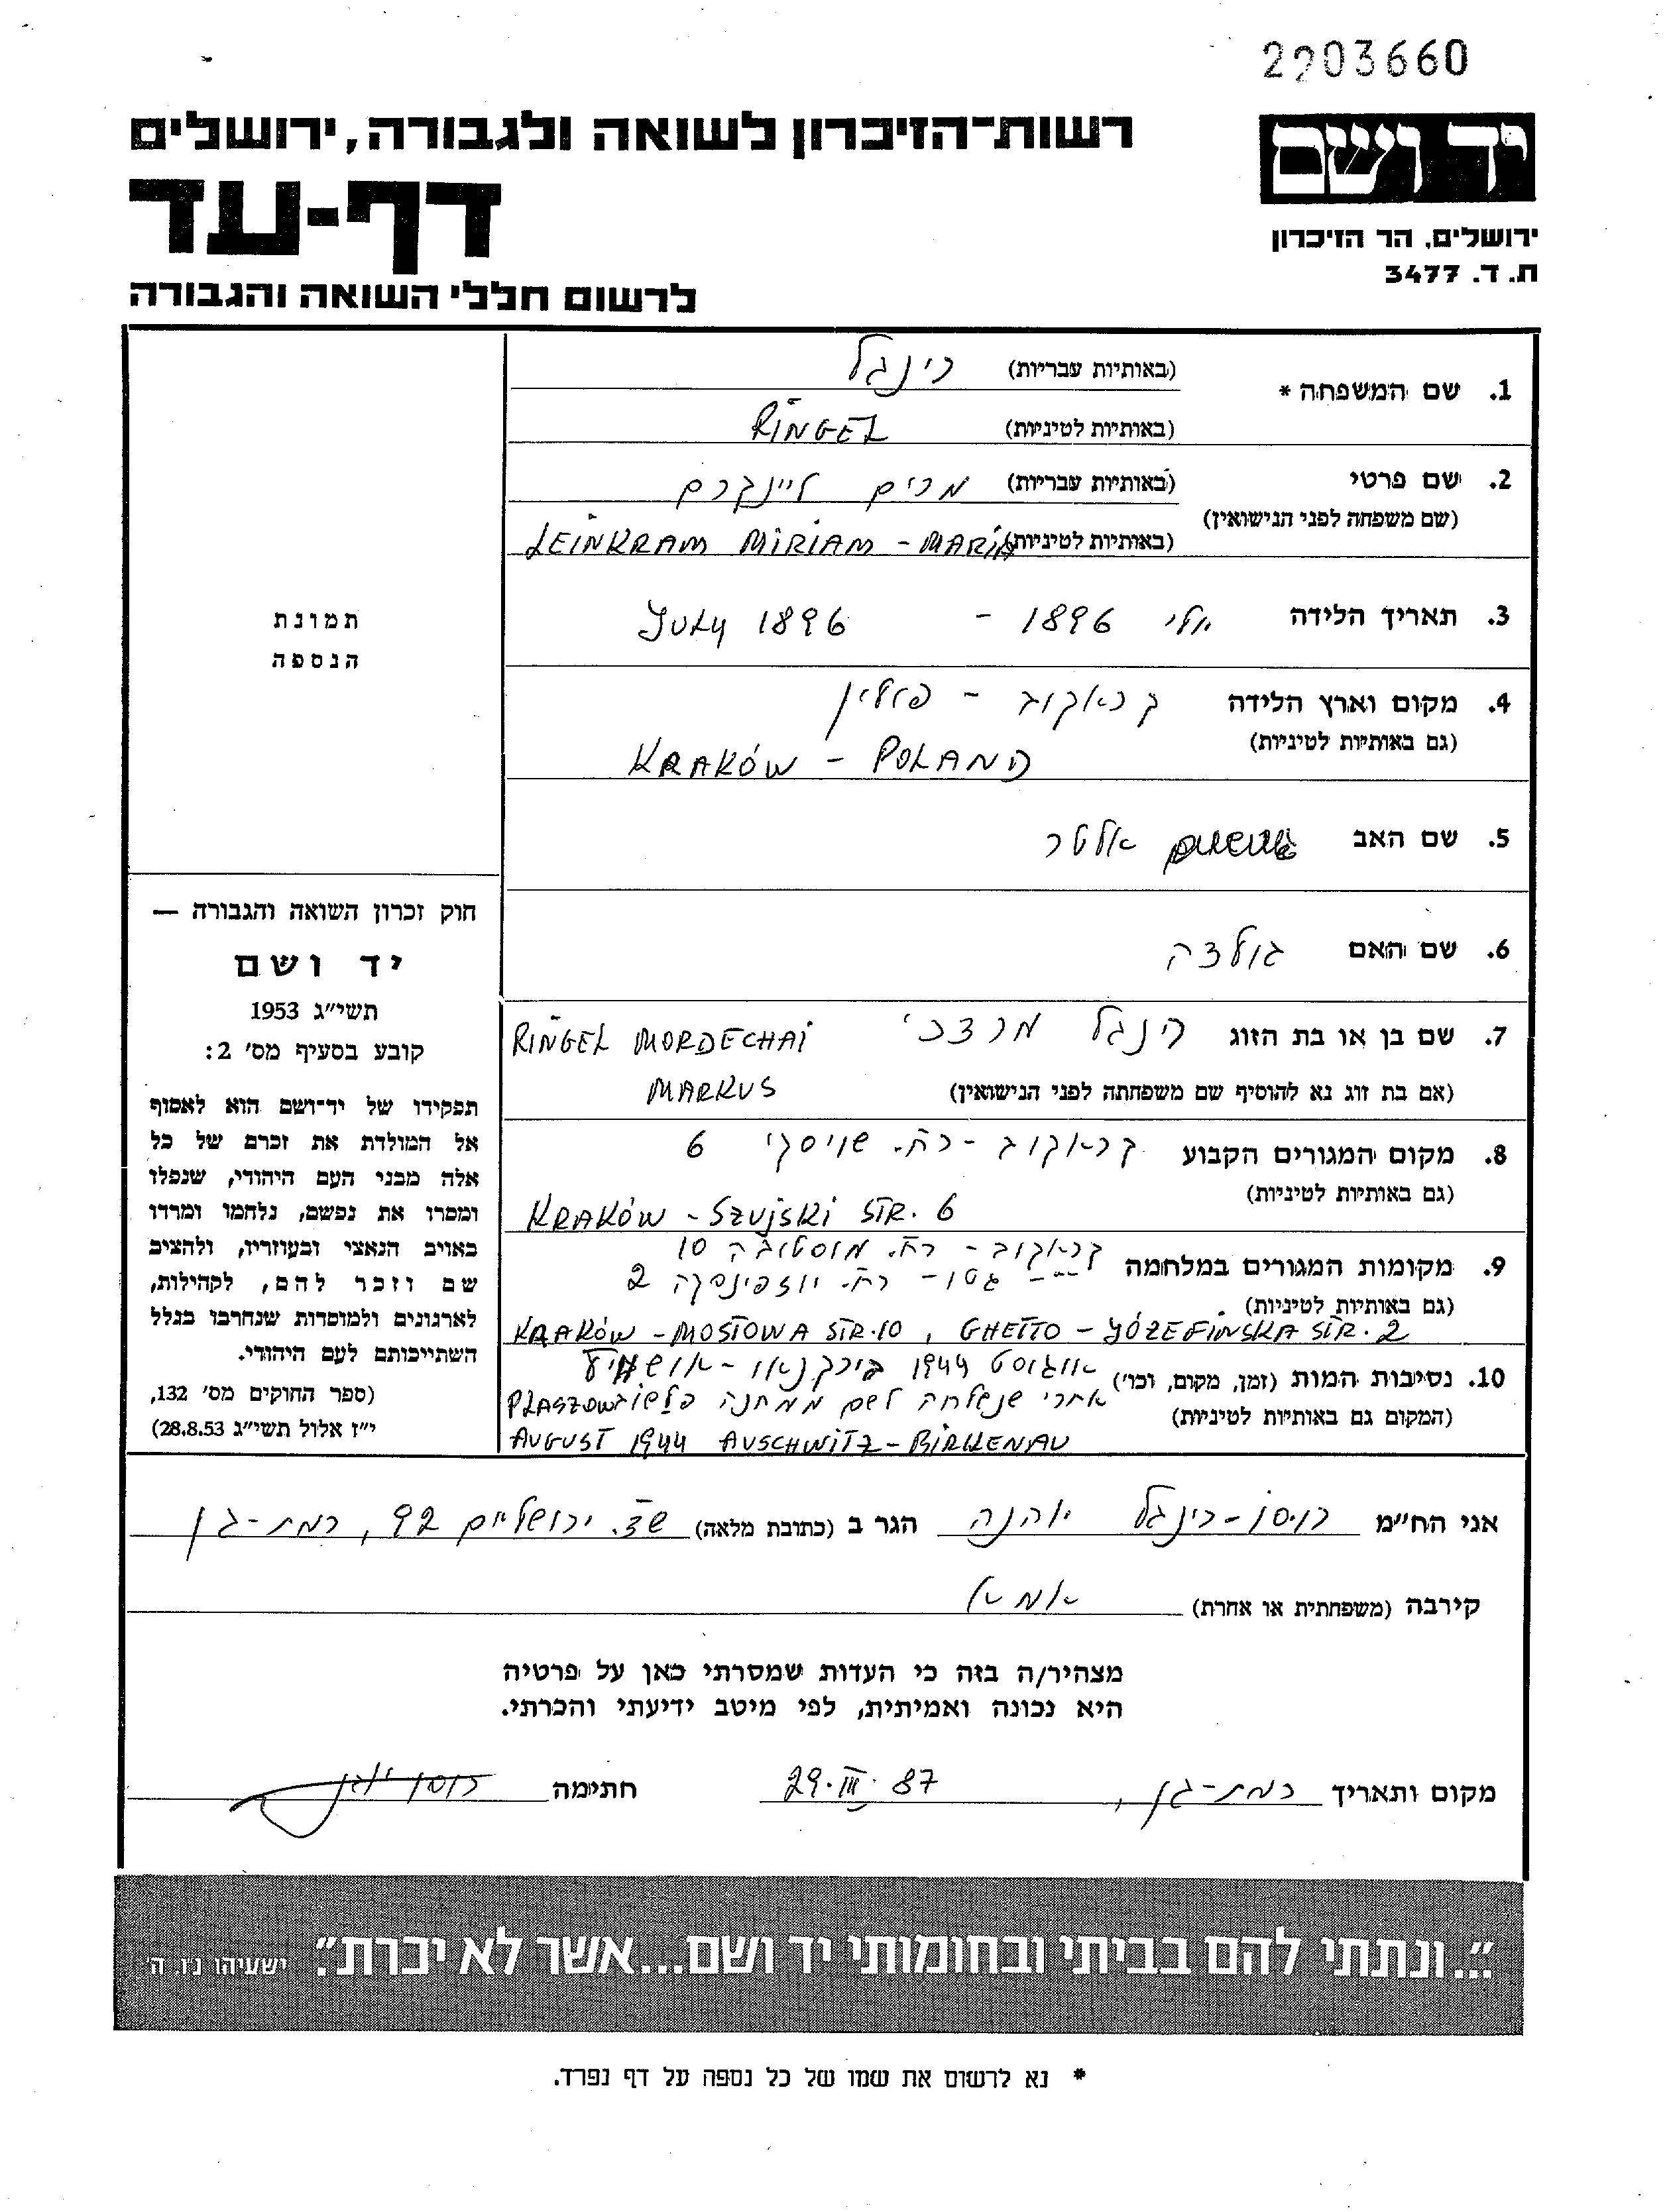 2903660
יד ושם
ירושלים, הר הזיכרון
ת. ד. 3477
רשות־הזיכרון לשואה ולגבורה, ירושלים
דף-עד
לרשום חללי השואה והגבורה
1. שם המשפחה *
(באותיות עבריות) רינגל
(באותיות לטיניות) RINGEL
2. שם פרטי
(שם משפחה לפני הנישואין)
(באותיות עבריות) מרים ליינקרם
(באותיות לטיניות) LEINKRAM MIRIAM - MARIA
3. תאריך הלידה יולי 1896 - JULY 1896
4. מקום וארץ הלידה קראקוב - פולין
(גם באותיות לטיניות) KRAKÓW - POLAND
5. שם האב אלטר
6. שם האם גולדה
7. שם בן או בת הזוג רינגל מרדכי RINGEL MORDECHAI
(אם בת זוג נא להוסיף שם משפחתה לפני הנישואין) MARKUS
8. מקום המגורים הקבוע קראקוב - רח. שויסקי 6
(גם באותיות לטיניות) KRAKÓW - SZUJSKI STR. 6
9. מקומות המגורים במלחמה קראקוב - רח. מוסטובה 10
גטו - רח. יוזפינסקה 2
(גם באותיות לטיניות) KRAKÓW - MOSTOWA STR. 10, GHETTO - JÓZEFINSKA STR. 2
10. נסיבות המות (זמן, מקום, וכו') אוגוסט 1944 בירקנאו - אושוויץ
אחרי שנשלחה לשם ממחנה פלשוב PLASZOW
(המקום גם באותיות לטיניות) AUGUST 1944 AUSCHWITZ - BIRKENAU
תמונת
הנספה
חוק זכרון השואה והגבורה —
יד ושם
תשי״ג 1953
קובע בסעיף מס' 2:
תפקידו של יד־ושם הוא לאסוף
אל המולדת את זכרם של כל
אלה מבני העם היהודי, שנפלו
ומסרו את נפשם, נלחמו ומרדו
באויב הנאצי ובעוזריו, ולהציב
שם וזכר להם, לקהילות,
לארגונים ולמוסדות שנחרבו בגלל
השתייכותם לעם היהודי.
(ספר החוקים מס' 132,
י״ז אלול תשי״ג 28.8.53)
אני הח״מ רוסו - רינגל יוהנה הגר ב (כתובת מלאה) שד. ירושלים 92, רמת-גן
קירבה (משפחתית או אחרת) אמא
מצהיר/ה בזה כי העדות שמסרתי כאן על פרטיה
היא נכונה ואמיתית, לפי מיטב ידיעתי והכרתי.
מקום ותאריך רמת-גן, 29.III.87 חתימה
״...ונתתי להם בביתי ובחומותי יד ושם...אשר לא יכרת״. ישעיהו נ״ו, ה'
* נא לרשום את שמו של כל נספה על דף נפרד.